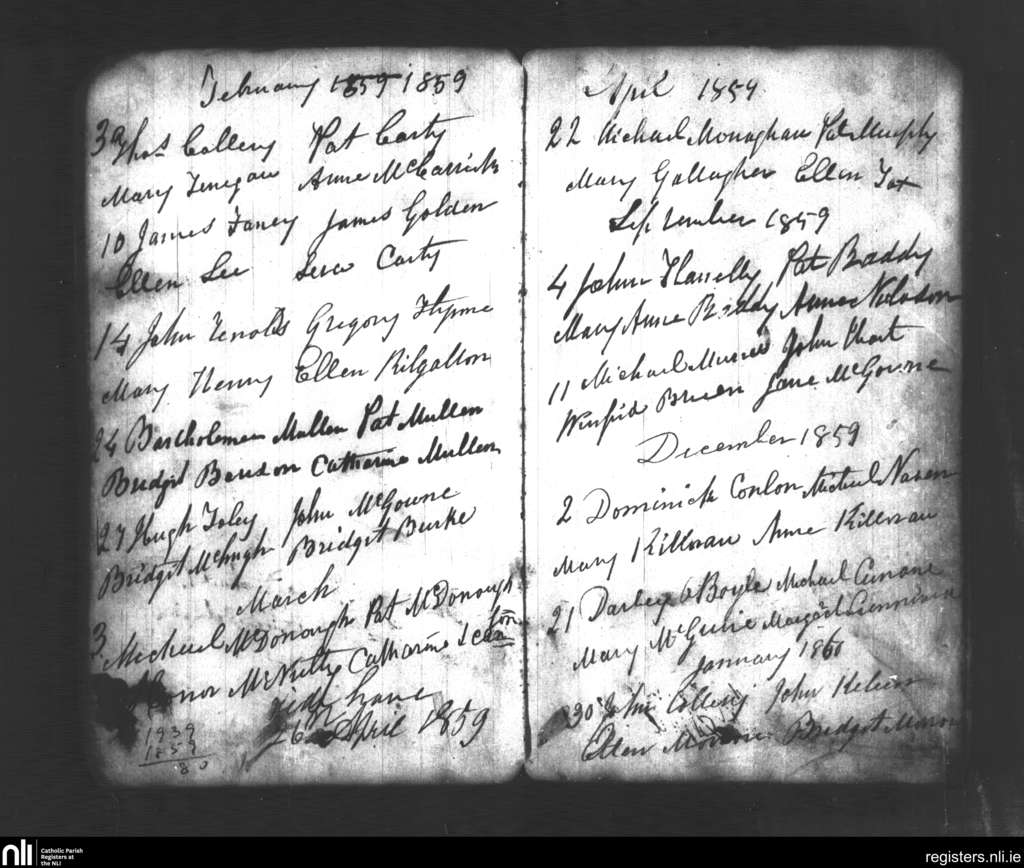 February 1859 1859
3 Thos Collery Pat Carty
Mary Finegan Anne McCarrick
10 James Fancy James Golden
Ellen Lee Carty
14 John Gregory
Mary Henry Ellen Kilgallon
24 Bartholemew Mullen Pat Mullen
Bridget Catharine Mullen
27 Hugh Foley John McGowne
Bridget McHugh Bridget Burke
March
3 Michael McDonough Pat McDonough
Honor McNulty Catharine Scanlon
April 1859
1939
1859
80
April 1859
22 Michael Monaghan Pat Murphy
Mary Gallagher Ellen Fox
September 1859
4 John Flannelly Pat Braddy
Mary Anne Braddy Anne
11 Michael John Hart
Bruen Jane McGowne
December 1859
2 Dominick Conlon Michael Naven
Mary Killoran Anne Killoran
21 Darley O Boyle Michael
Mary McGuire Margaret
January 1860
30 John Collery John
Ellen Bridget
nli
Catholic Parish
Registers at
the NLI
registers.nli.ie